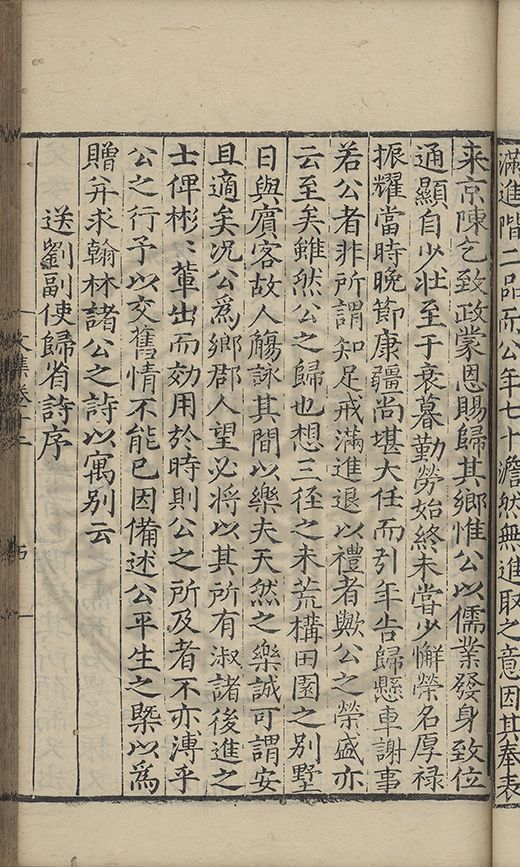 滿進階二品而公年七十澹然無進取之意因其奉表
来京陳乞致政蒙恩賜歸其鄉惟公以儒業發身致位
通顯自少壯至于衰暮勤勞始終未嘗少懈榮名厚禄
振耀當時晚節康疆尚堪大任而引年告歸懸車謝事
若公者非所謂知足戒滿進退以禮者歟公之榮盛亦
云至矣雖然公之歸也想三徑之未荒構田園之别墅
日與賓客故人觴詠其間以樂夫天然之樂誠可謂安
且適矣况公爲鄉郡人望必将以其所有淑諸後進之
士俾彬〻輩出而効用於時則公之所及者不亦溥乎
公之行予以交舊情不能已因備述公平生之槩以爲
贈并求翰林諸公之詩以寓别云
送劉副使歸省詩序
文集卷十二